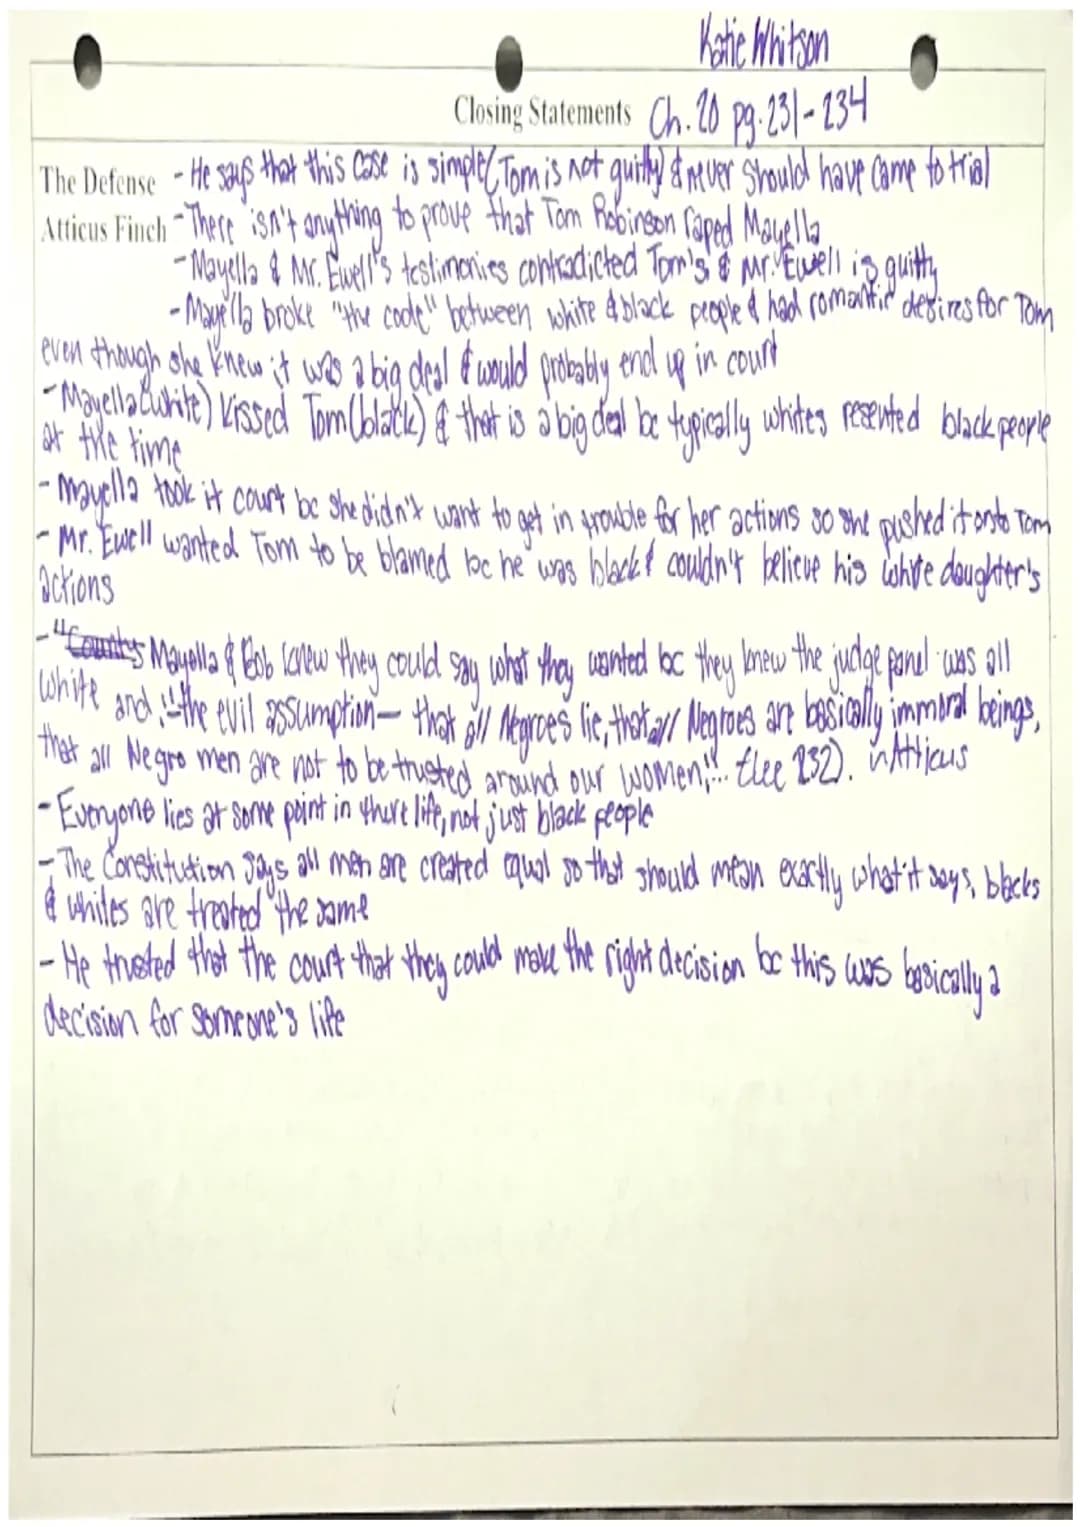 Katie Whitson
Closing Statements Ch. 20 pg. 231-234
The Defense - He says that this case is simple (Tom is not guilty) & never should have came to trial
Atticus Finch - There isn't anything to prove that Tom Robinson raped Mayella
- Mayella & Mr. Ewell's testimonies contradicted Tom's & Mr. Ewell is guilty
- Mayella broke "the code" between white & black people & had romantic desires for Tom
even though she knew it was a big deal & would probably end up in court
- Mayella (white) kissed Tom (black) & that is a big deal bc typically whites resented black people
at the time
- Mayella took it court bc she didn't want to get in trouble for her actions so she pushed it onto Tom
- Mr. Ewell wanted Tom to be blamed bc he was black & couldn't believe his white daughter's
actions
- Mayella & Bob knew they could say what they wanted bc they knew the judge panel was all
white and, "the evil assumption— that all Negroes lie, that all Negroes are basically immoral beings,
that all Negro men are not to be trusted around our women,"... (Lee 232). in Atticus
- Everyone lies at some point in there life, not just black people
- The Constitution says all men are created equal so that should mean exactly what it says, blacks
& whites are treated the same
- He trusted that the court that they could make the right decision bc this was basically a
decision for someone's life